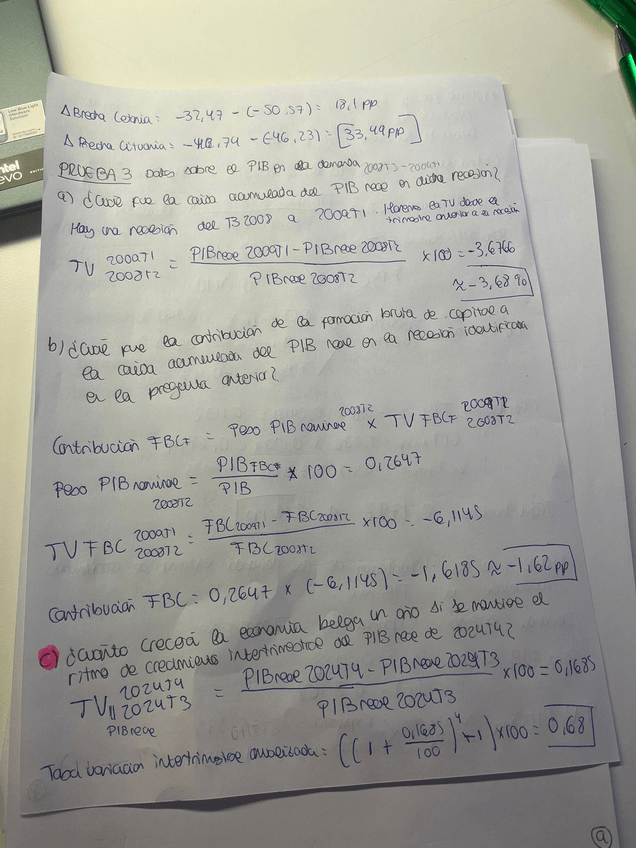 Δ Brecha Letonia: -32,47 - (-50,57) = 18,1 pp
Δ Brecha Lituania: - 74 - (-46,23) = [33,49 pp]
PRUEBA 3 Datos sobre el PIB en la demanda 2008T3-2009T1
a) ¿Cuál fue la caída acumulada del PIB real en dicha recesión?
Hay una recesión del T3 2008 a 2009T1. Haremos la TV desde el trimestre anterior a la recesión
TV 2009T1 2008T2 = PIBreal 2009T1 - PIBreal 2008T2 / PIBreal 2008T2 x100 = -3,6766
≈ -3,68%
b) ¿Cuál fue la contribución de la formación bruta de capital a
la caída acumulada del PIB real en la recesión identificada
en la pregunta anterior?
Contribución FBC = Peso PIB nominal 2008T2 x TV FBC 2009T1 2008T2
Peso PIB nominal 2008T2 = PIB FBC / PIB * 100 = 0,2647
TV FBC 2009T1 2008T2 = FBC 2009T1 - FBC 2008T2 / FBC 2008T2 x100 = -6,1145
Contribución FBC = 0,2647 x (-6,1145) = -1,6185 ≈ -1,62 pp
c) ¿Cuánto crecerá la economía belga un año si se mantiene el
ritmo de crecimiento intertrimestral del PIB real de 2024T4?
TV 2024T4 2024T3 PIBreal = PIBreal 2024T4 - PIBreal 2024T3 / PIBreal 2024T3 x100 = 0,1685
Tasa variación intertrimestral anualizada = ((1 + 0,1685/100)^4 - 1) x100 = 0,68
9
intel
evo